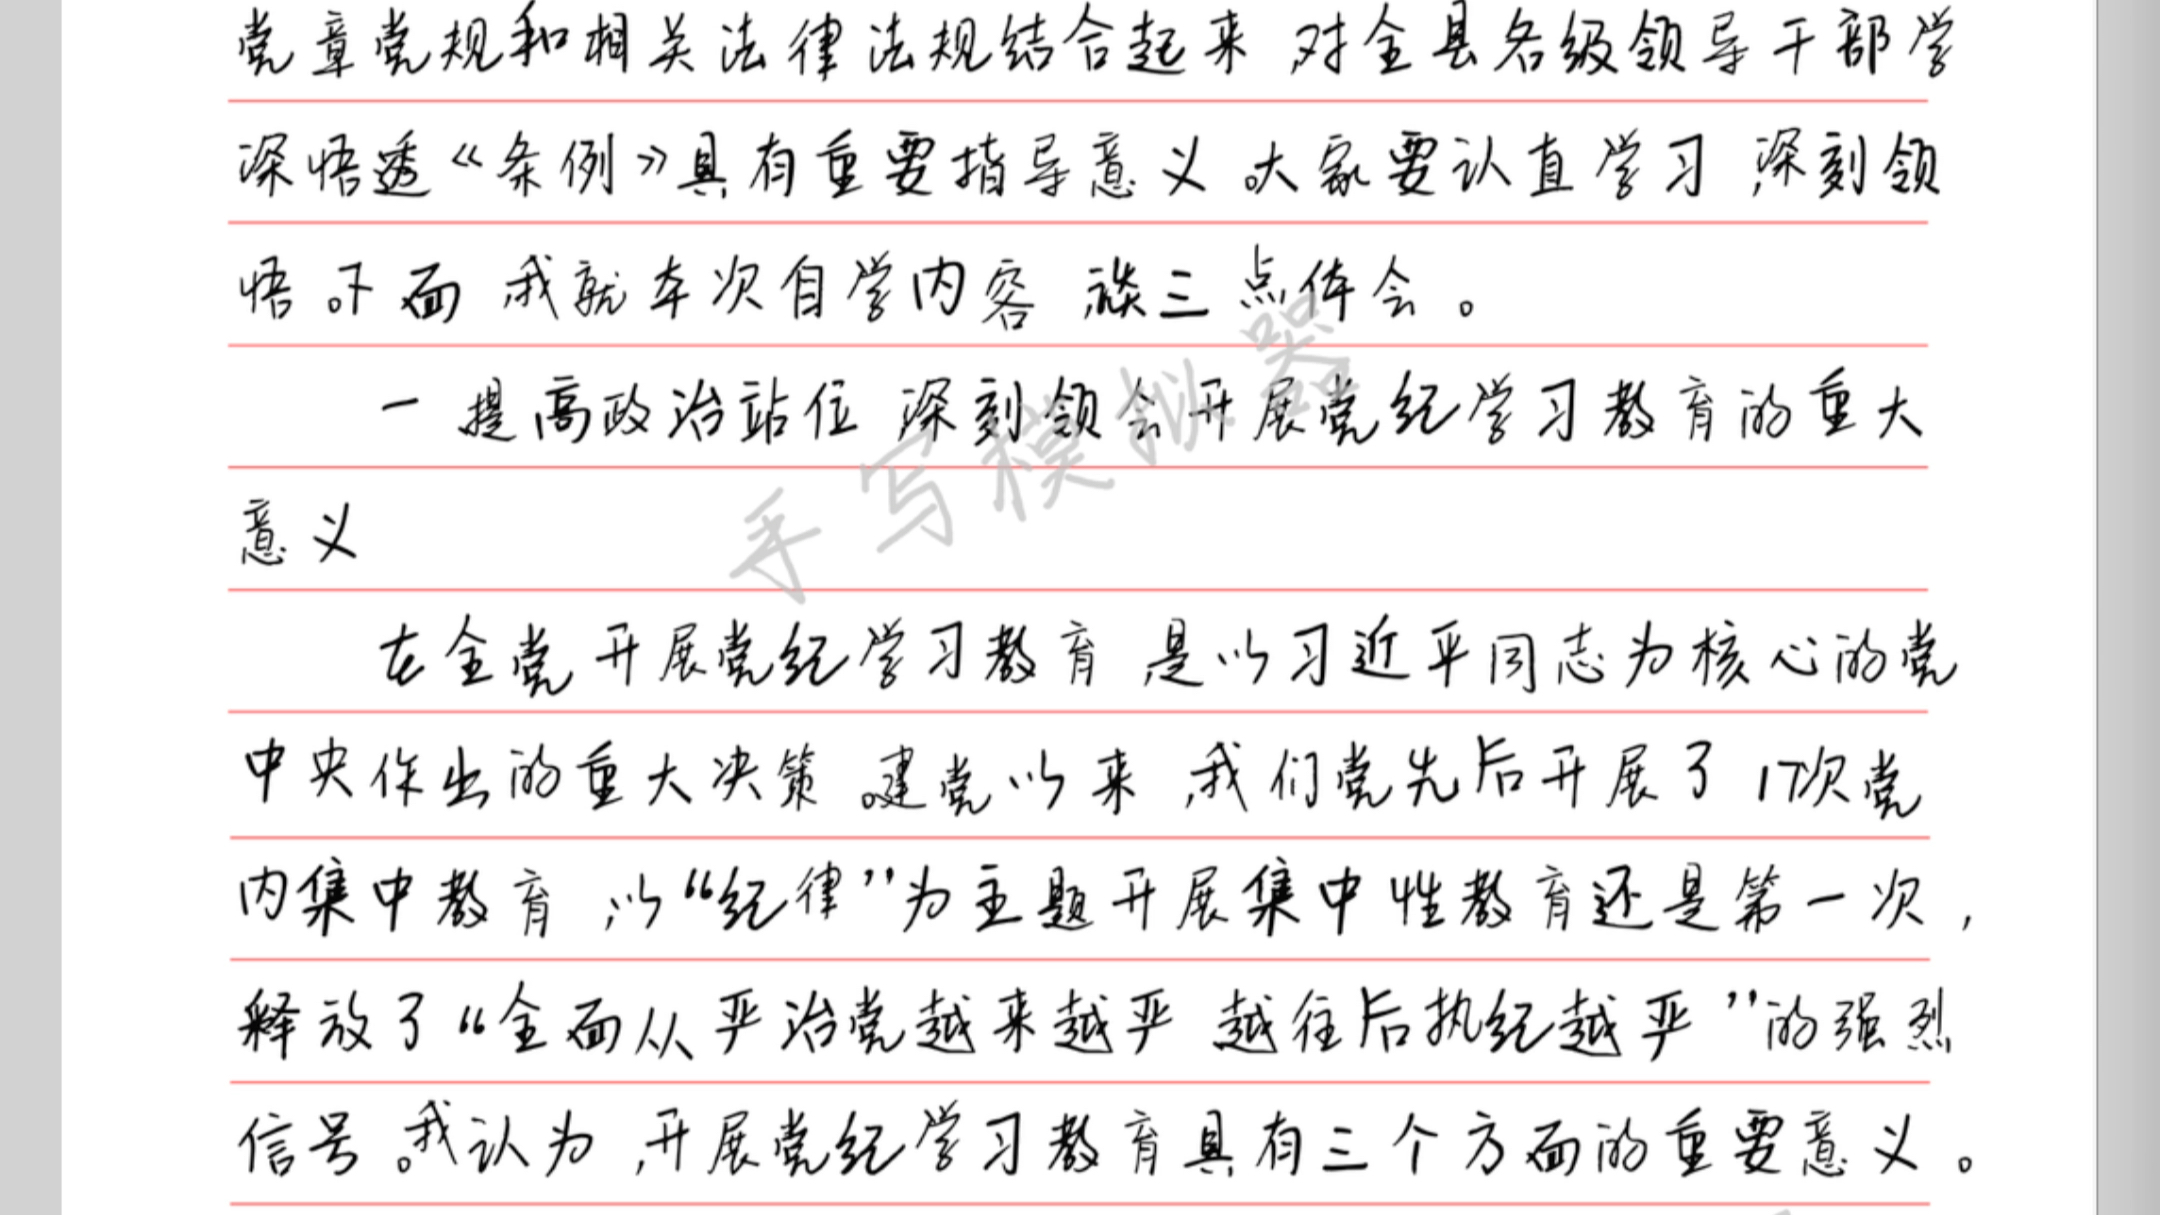 党章党规和相关法律法规结合起来,对全县各级领导干部学
深悟透《条例》具有重要指导意义。大家要认真学习,深刻领
悟。下面,我就本次自学内容,谈三点体会。
一 提高政治站位 深刻领会开展党纪学习教育的重大
意义
在全党开展党纪学习教育,是以习近平同志为核心的党
中央作出的重大决策。建党以来,我们党先后开展了17次党
内集中教育,以“纪律”为主题开展集中性教育还是第一次,
释放了“全面从严治党越来越严 越往后执纪越严”的强烈
信号。我认为,开展党纪学习教育具有三个方面的重要意义。
手写模拟器